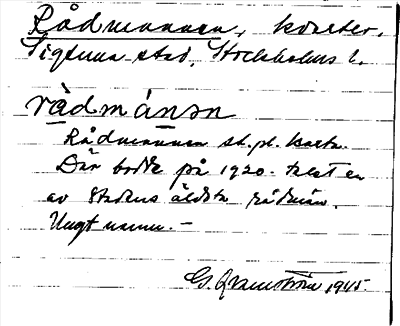 Rådmannen, kvarter.
Sigtuna stad, Stockholms l.
rådmánsn
Rådmannen st. pl. karta.
Där bodde på 1920-talet en
av stadens äldsta rådmän.
Ungt namn. -
G. Qvarnström 1945.